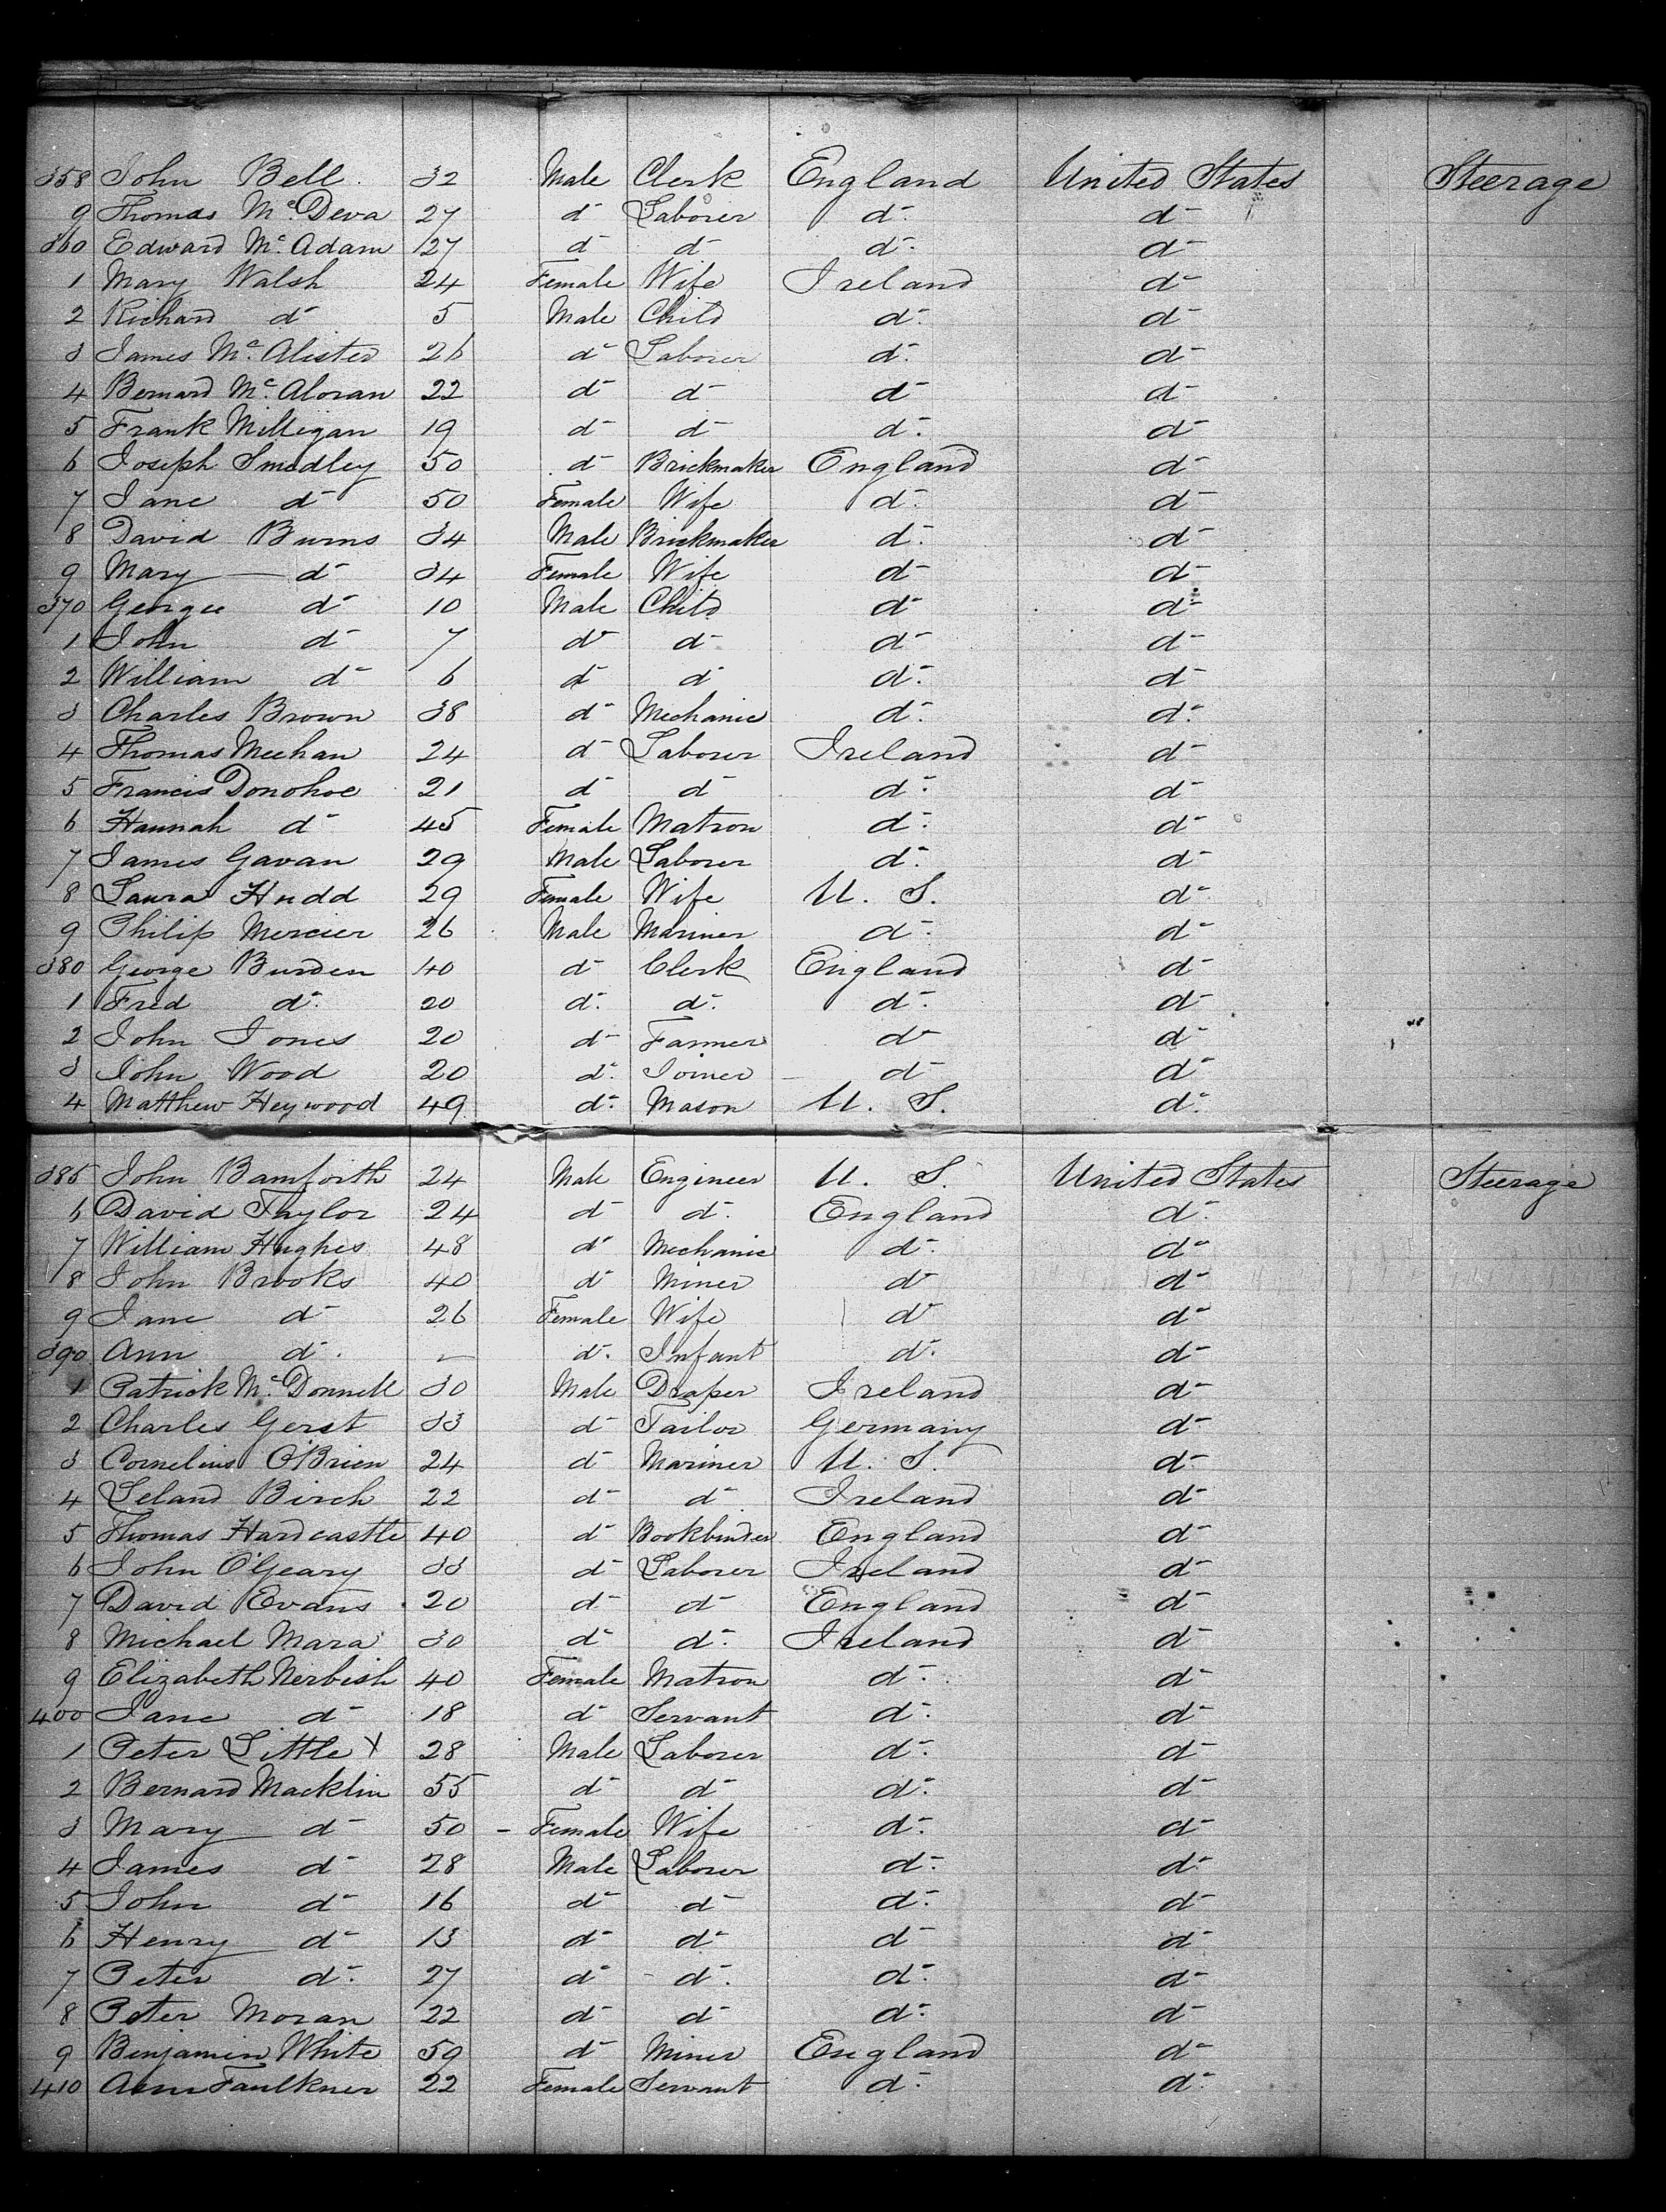 358 John Bell. 32 Male Clerk England United States Steerage
9 Thomas Mc. Deva 27 d- Laborer d-. d-
360 Edward Mc. Adam 27 d- d- d-. d-
1 Mary Walsh 24 Female Wife Ireland d-
2 Richard d- 5 Male Child d-. d-
3 James Mc. Alister 26 d- Laborer d-. d-
4 Bernard Mc. Aloran 22 d- d- d- d-
5 Frank Milligan 19 d- d- d-. d-
6 Joseph Smedley 50 d- Brickmaker England d-
7 Jane d- 50 Female Wife d-. d-
8 David Burns 34 Male Brickmaker d-. d-
9 Mary d- 34 Female Wife d- d-
370 George d- 10 Male Child d- d-
1 John d- 7 d- d- d- d-
2 William d- 6 d- d- d-. d-
3 Charles Brown 38 d- Mechanic d-. d-.
4 Thomas Meehan 24 d- Laborer Ireland d-
5 Francis Donohoe 21 d- d- d-. d-
6 Hannah d- 45 Female Matron d-. d-
7 James Gavan 29 Male Laborer d-. d-
8 Laura Hudd 29 Female Wife U. S. d-
9 Philip Mercier 26 Male Mariner d-. d-
380 George Burden 40 d- Clerk England d-
1 Fred d-. 20 d-. d-. d-. d-
2 John Jones 20 d- Farmer d- d-
3 John Wood 20 d-. Joiner d- d-
4 Matthew Heywood 49 d-. Mason U. S. d-.
385 John Bamforth 24 Male Engineer U. S. United States Steerage
6 David Taylor 24 d- d-. England d-.
7 William Hughes 48 d- Mechanic d-. d-
8 John Brooks 40 d- Miner d- d-
9 Jane d- 26 Female Wife d- d-
390 Ann d-. - d-. Infant d-. d-
1 Patrick Mc. Donnell 30 Male Draper Ireland d-
2 Charles Gerst 33 d- Tailor Germany d-
3 Cornelius O'Brien 24 d- Mariner U. S. d-
4 Leland Birch 22 d- d- Ireland d-
5 Thomas Hardcastle 40 d- Bookbinder England d-
6 John O'Geary 33 d- Laborer Ireland d-
7 David Evans 20 d- d- England d-
8 Michael Mara 30 d- d-. Ireland d-
9 Elizabeth Nerbish 40 Female Matron d-. d-
400 Jane d- 18 d- Servant d-. d-
1 Peter Little X 28 Male Laborer d-. d-
2 Bernard Macklin 55 d- d- d-. d-
3 Mary d- 50 - Female Wife d-. d-
4 James d- 28 Male Laborer d-. d-
5 John d- 16 d- d- d-. d-
6 Henry d- 13 d- d- d- d-
7 Peter d-. 27 d- d-. d-. d-
8 Peter Moran 22 d- d- d-. d-
9 Benjamin White 59 d- Miner England d-
410 Ann Faulkner 22 Female Servant d-. d-.